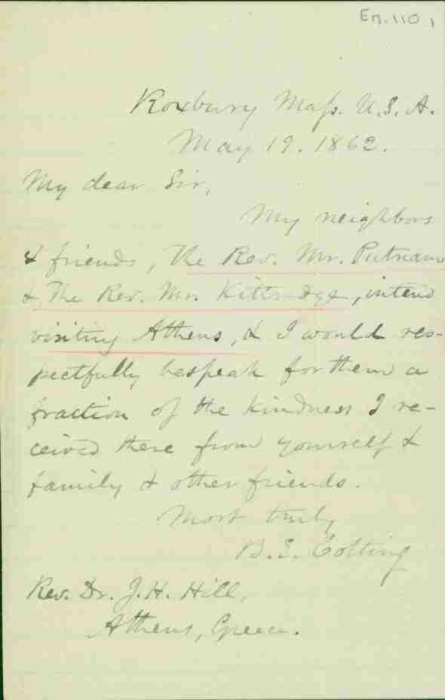 Em. 110 1
Roxbury Mass. U.S.A.
May 19. 1862.
My dear Sir,
My neighbors
& friends, the Rev. Mr. Putnam
& The Rev. Mr. Kittredge, intend
visiting Athens, & I would res-
pectfully bespeak for them a
fraction of the kindness I re-
ceived there from yourself &
family & other friends.
Most truly
B. E. Cotting
Rev. Dr. J. H. Hill,
Athens, Greece.